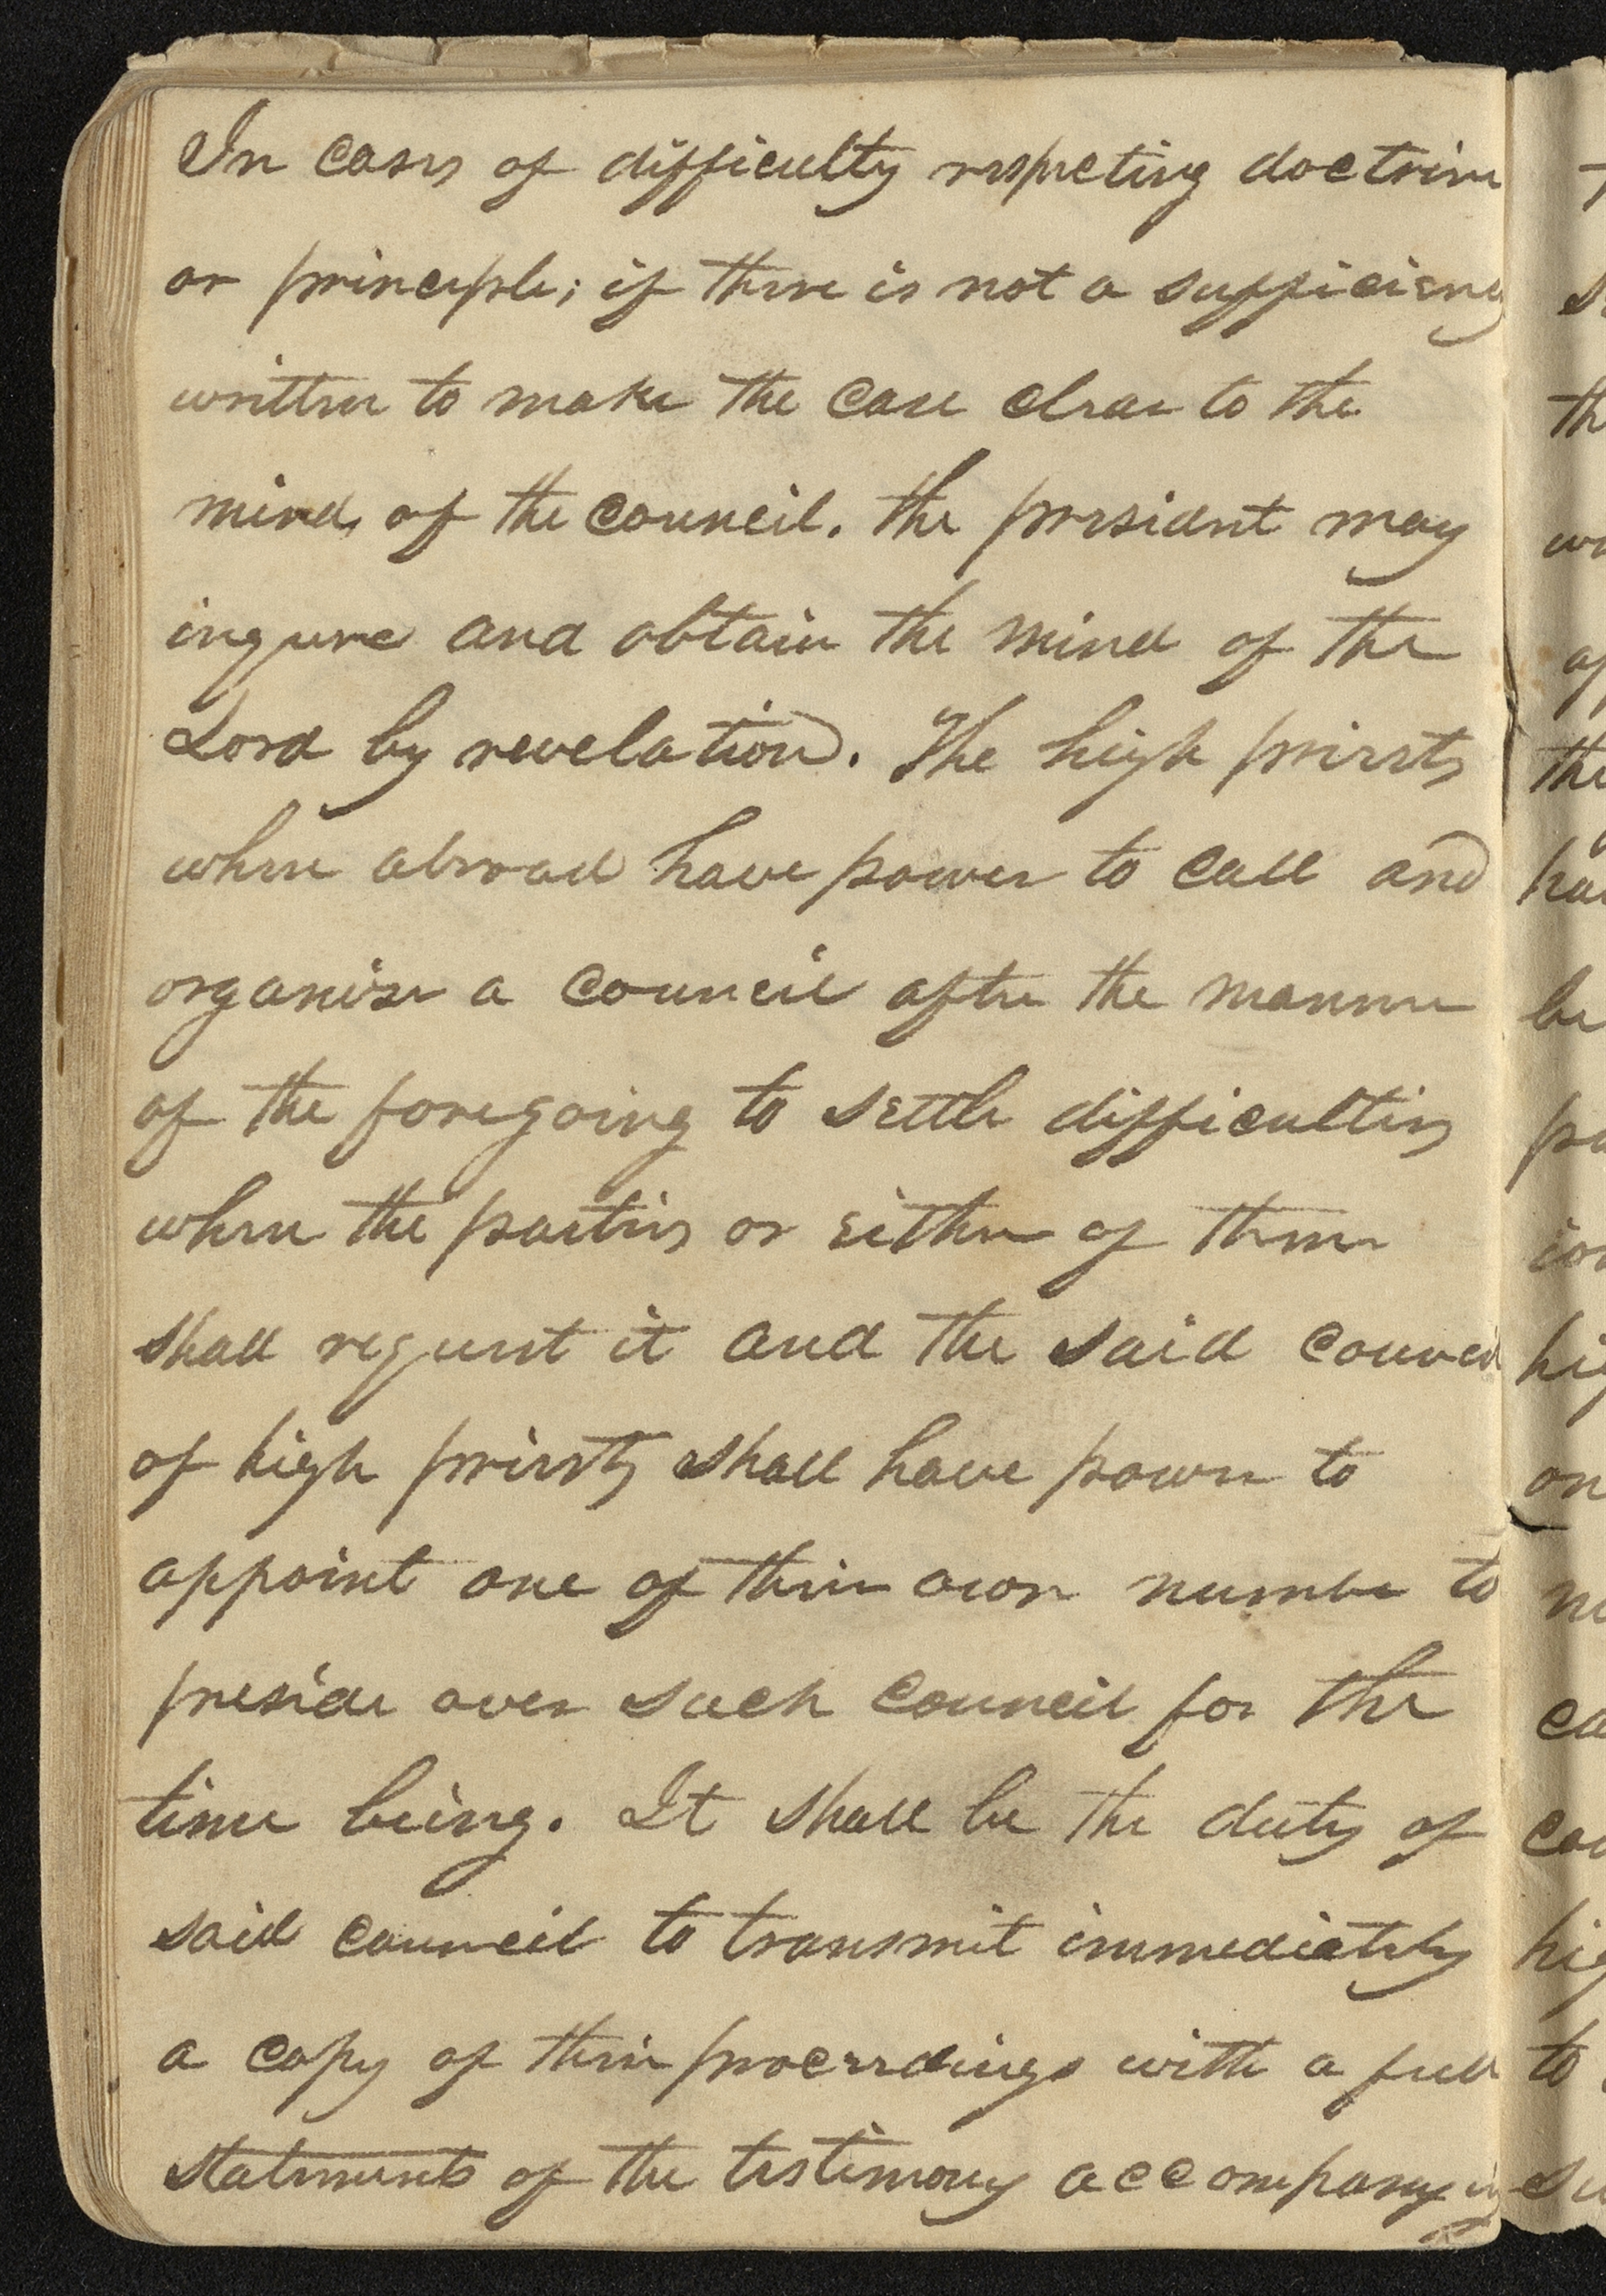 In cases of difficulty respecting doctrine
or principle; if there is not a sufficiency
written to make the case clear to the
minds of the council. the president may
inqure and obtain the mind of the
Lord by revelation. The high priests
when abroad have power to call and
organize a council after the manner
of the foregoing to settle difficulties
when the parties or either of them
shall request it and the said council
of high priests shall have power to
appoint one of their own number to
preside over such council for the
time being. It shall be the duty of
said council to transmit immediately
a copy of their proceedings with a full
statements of the testimony accompanying